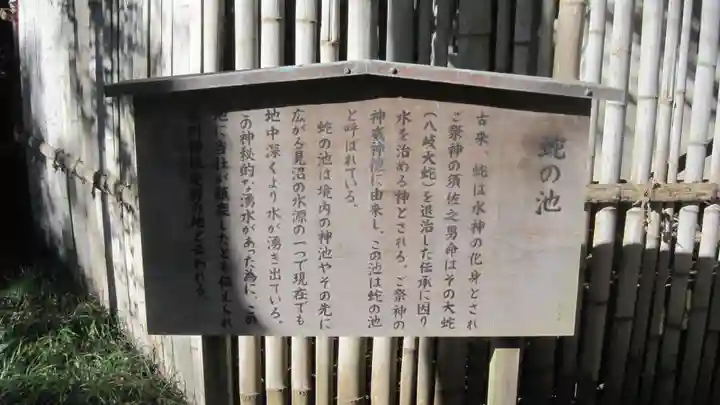 蛇の池
古来、蛇は水神の化身とされ
ご祭神の須佐之男命はその大蛇
(八岐大蛇)を退治した伝承に因り
水を治める神とされる。ご祭神の
神裔神陵に由来し、この池は蛇の池
と呼ばれている。
蛇の池は境内の神池やその先に
広がる見沼の水源の一つで現在でも
地中深くより水が湧き出ている。
この神秘的な湧水があった為に、この
地に当社が鎮座したとも伝えられ
発祥の地といわれる。